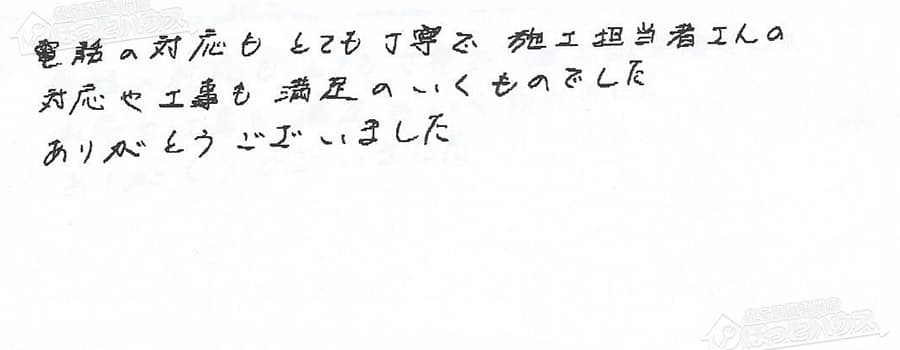 電話の対応もとても丁寧で 施工担当者さんの
対応や工事も満足のいくものでした
ありがとうございました